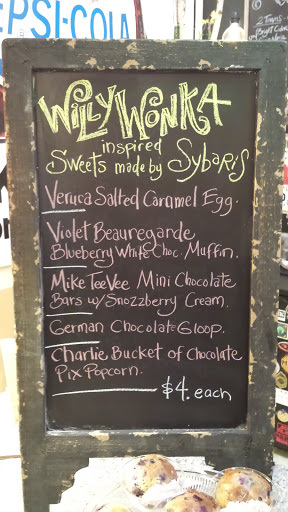 EPSI-COLA
WILLY WONKA
inspired
Sweets made by Sybaris
Veruca Salted Caramel Egg.
Violet Beauregarde
Blueberry White Choc. Muffin.
Mike TeeVee Mini Chocolate
Bars w/ Snozzberry Cream.
German Chocolate Gloop.
Charlie Bucket of Chocolate
Pix Popcorn.
$4. each